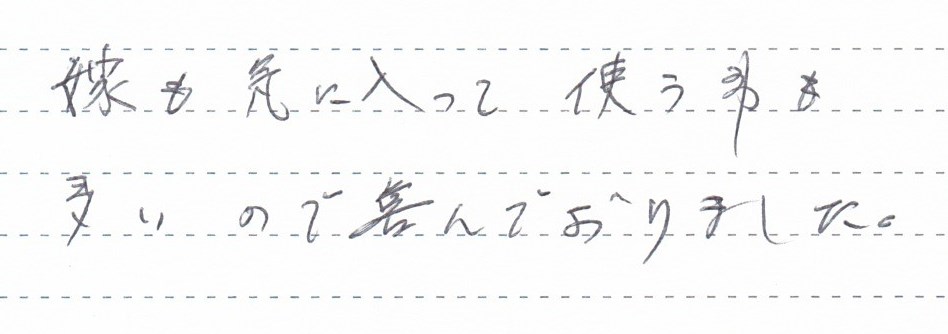 嫁も気に入って 使う事も
多いので喜んでおりました。